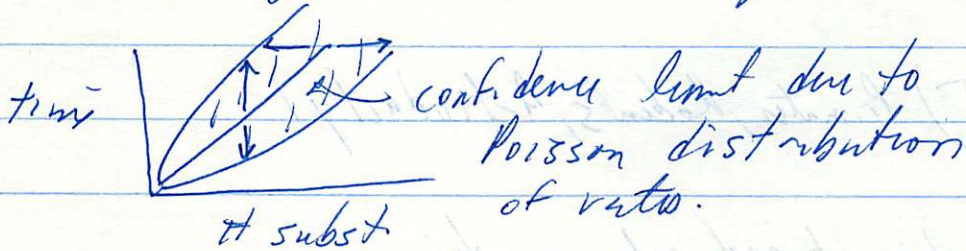 time
confidence limit due to
Poisson distribution
of ratio.
# subst.